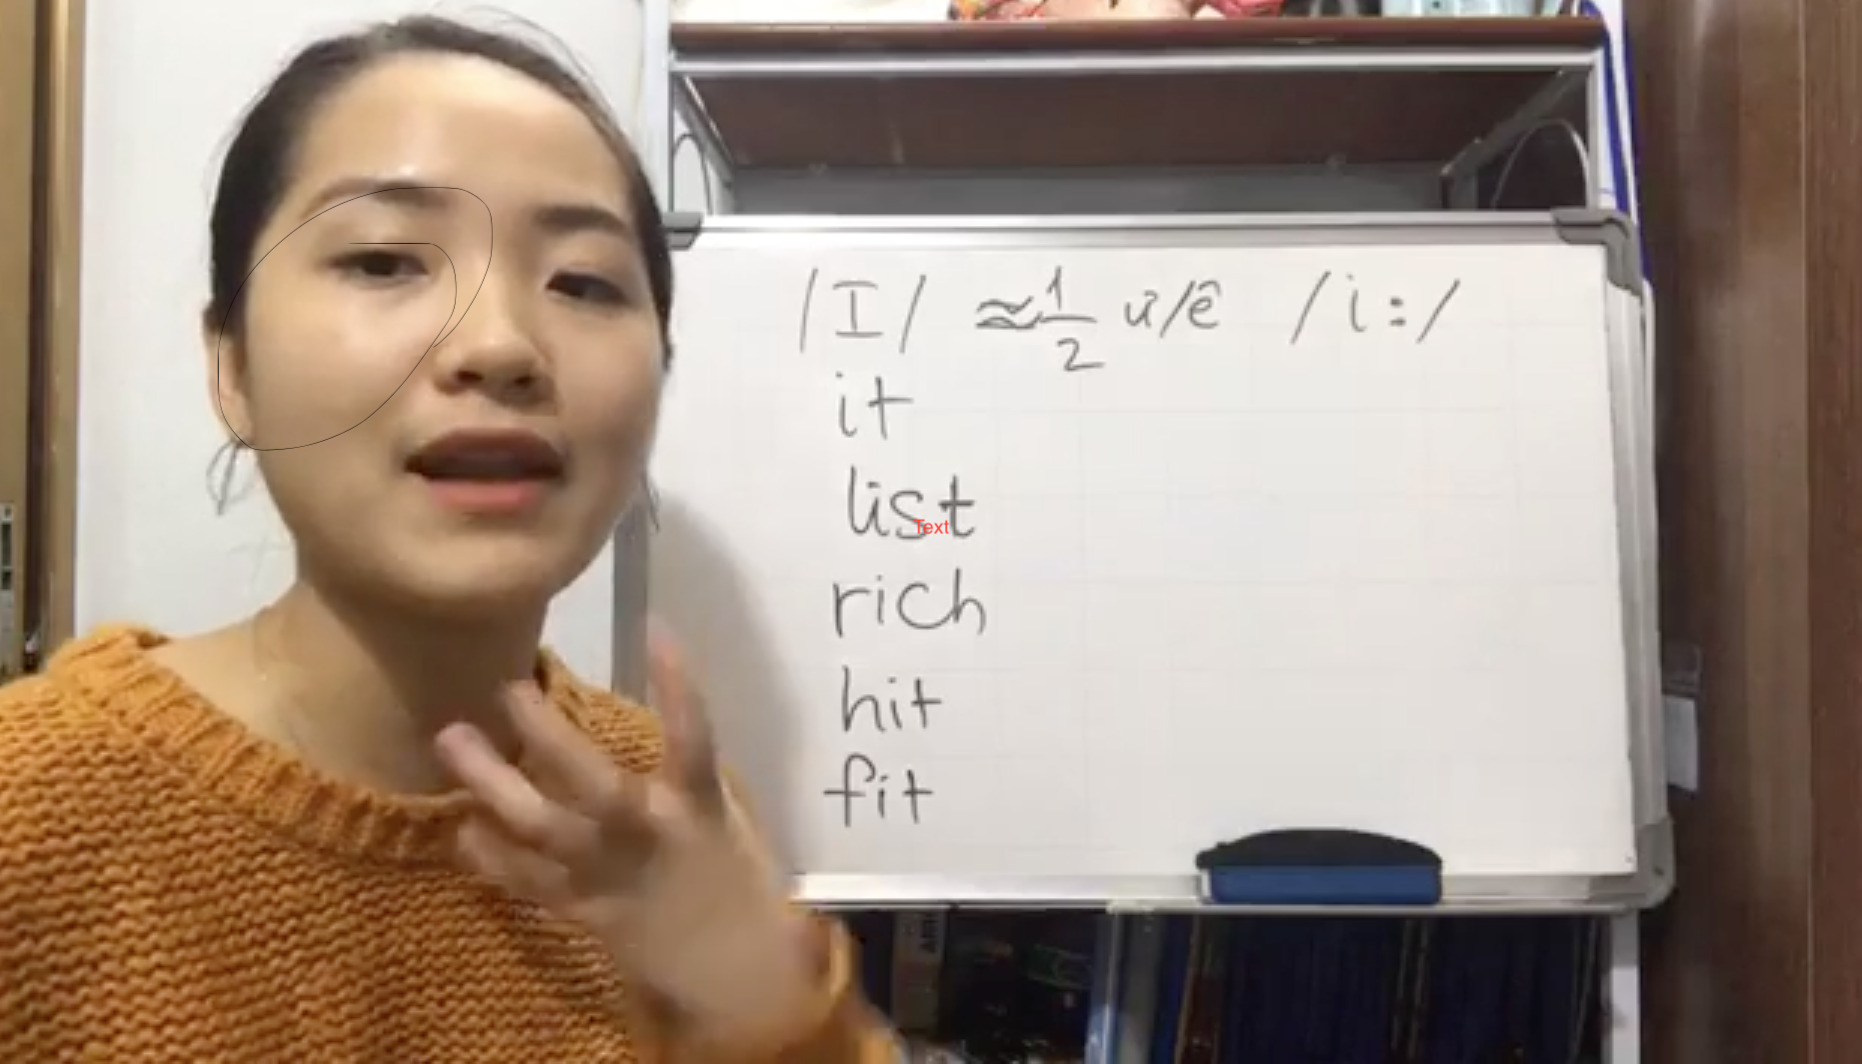 /I/ ≈ 1/2 ư/ê /i:/
it
list
Text
rich
hit
fit